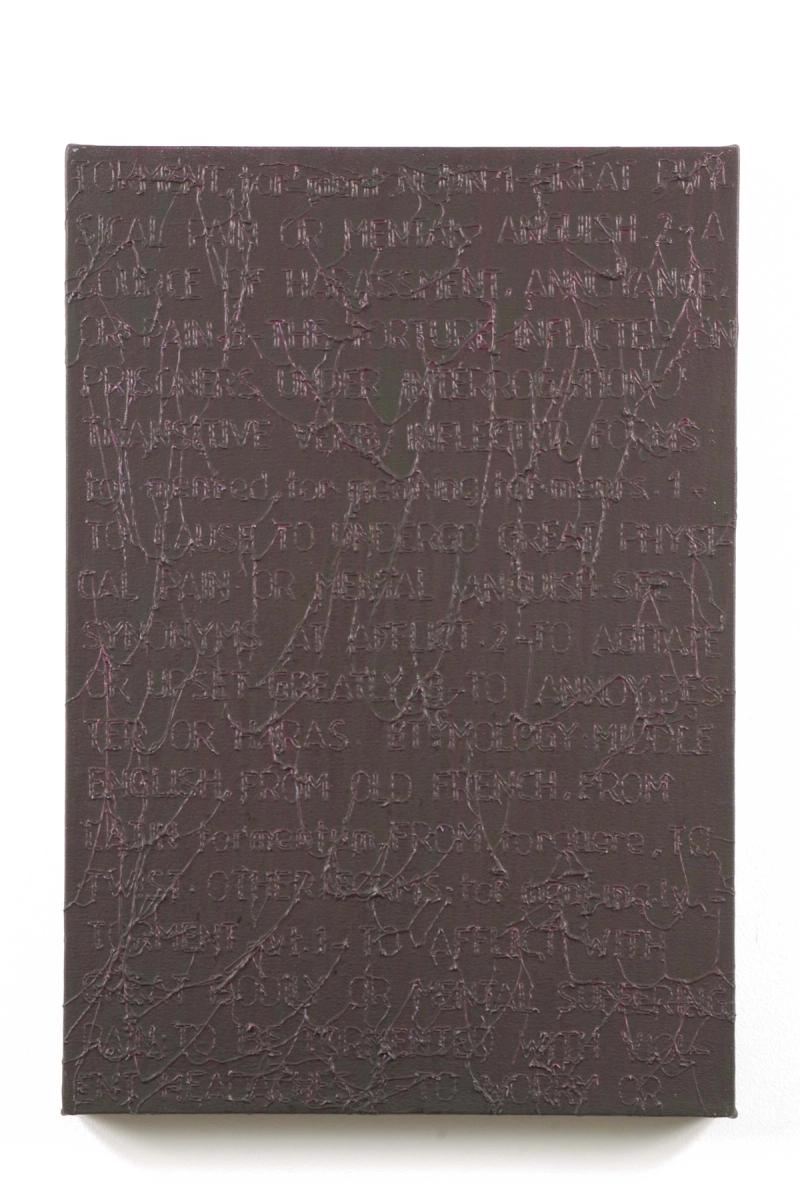 TORMENT, tor·ment NOUN:1-GREAT PHY
SICAL PAIN OR MENTAL ANGUISH.2-A
SOURCE OF HARASSMENT, ANNOYANCE,
OR PAIN.3-THE TORTURE INFLICTED ON
PRISONERS UNDER INTERROGATION.
TRANSITIVE VERB, INFLECTED FORMS:
tor·mented, tor·menting, tor·ments.1.
TO CAUSE TO UNDERGO GREAT PHYSI-
CAL PAIN OR MENTAL ANGUISH.SEE
SYNONYMS AT AFFLICT.2-TO AGITATE
OR UPSET GREATLY.3-TO ANNOY,PES-
TER,OR HARAS. ETYMOLOGY:MIDDLE
ENGLISH,FROM OLD FRENCH,FROM
LATIN tormentum,FROM torquere,TO
TWIST.OTHER FORMS:tor·menting·ly-
TORMENT vt:1-TO AFFLICT WITH
GREAT BODILY OR MENTAL SUFFERING
PAIN:TO BE TORMENTED WITH VIOL-
ENT HEADACHES. TO WORRY OR